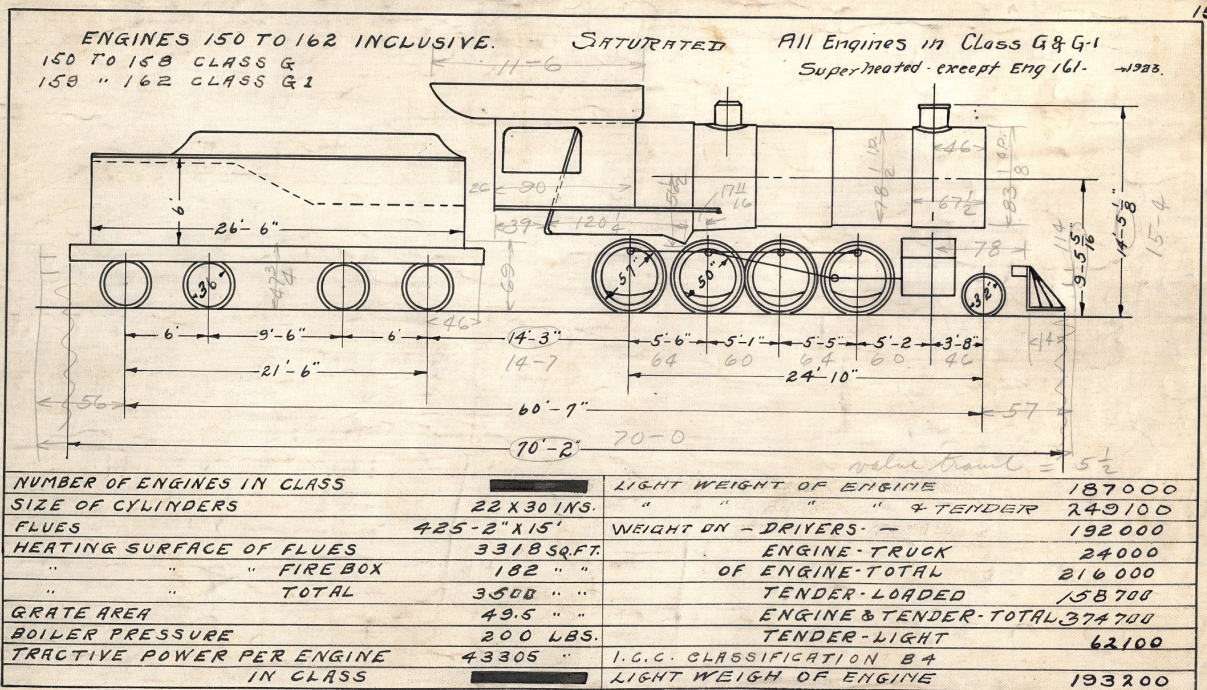 15
ENGINES 150 TO 162 INCLUSIVE. SATURATED All Engines in Class G & G-1
150 TO 158 CLASS G
Superheated - except Eng 161- 1923.
159 " 162 CLASS G1
11-6
46
26 90
56½
17 11/16
78½ I.P.
67½
83⅛ O.P.
6
26'-6"
39 120¼
78
114
9-5 5/16
14'-5⅛"
15-4
11
36"
47¾
69
57"
50"
32"
6' 9'-6" 6' 46 14'-3" 5'-6" 5'-1" 5-5" 5'-2 3'-8" 14
14-7 64 60 64 60 46
21'-6" 24'-10"
56 60'-7" 57
70'-2" 70-0
= 5½
NUMBER OF ENGINES IN CLASS
SIZE OF CYLINDERS 22 X 30 INS.
FLUES 425-2" X 15'
HEATING SURFACE OF FLUES 3318 SQ.FT.
" " " FIRE BOX 182 " "
" " TOTAL 3500 " "
GRATE AREA 49.5 " "
BOILER PRESSURE 200 LBS.
TRACTIVE POWER PER ENGINE 43305 "
IN CLASS
LIGHT WEIGHT OF ENGINE 187000
" " " " & TENDER 249100
WEIGHT ON - DRIVERS - — 192000
ENGINE-TRUCK 24000
OF ENGINE-TOTAL 216000
TENDER-LOADED 158700
ENGINE & TENDER-TOTAL 374700
TENDER-LIGHT 62100
I.C.C. CLASSIFICATION B4
LIGHT WEIGH OF ENGINE 193200